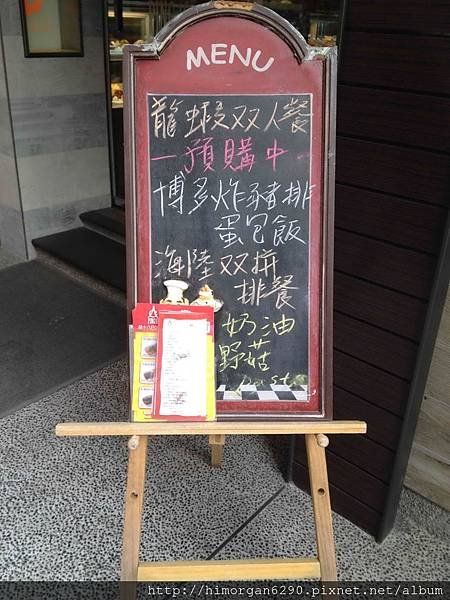 MENU
龍蝦双人餐
-預購中-
博多炸豬排
蛋包飯
海陸双拼
排餐
奶油
野菇
pasta
http://himorgan6290.pixnet.net/album